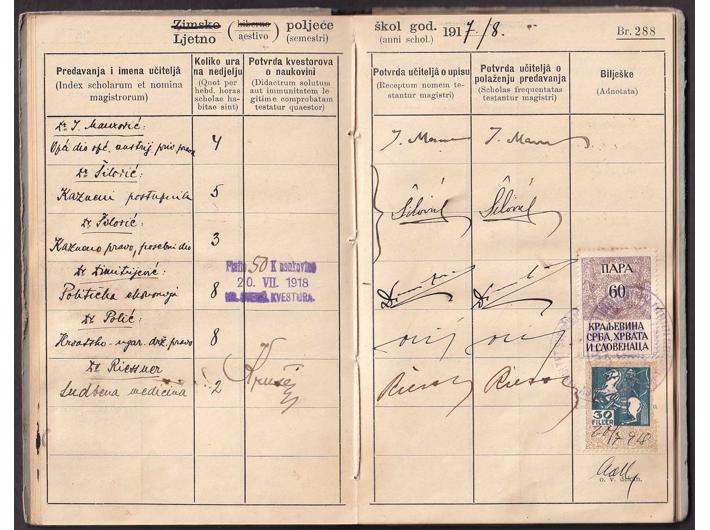 Zimsko
Ljetno
(hiberno
aestivo)
poljeće
(semestri)
škol god.
(anni schol.)
1917/8.
Br. 288
Predavanja i imena učiteljâ
(Index scholarum et nomina
magistrorum)
Koliko ura
na nedjelju
(Quot per
hebd. horas
scholae ha-
bitae sint)
Potvrda kvestorova
o naukovini
(Didactrum solutum
aut immunitatem le
gitime comprobatam
testatur quaestor)
Potvrda učiteljâ o upisu
(Receptum nomen te-
stantur magistri)
Potvrda učiteljâ o
polaženju predavanja
(Scholas frequentatas
testantur magistri)
Bilješke
(Adnotata)
Dr J. Maurović:
Opći dio opć. austrij. priv. prava
4
Dr Šilović:
Kazneni postupnik
5
Šilović
Šilović
Dr Šilović:
Kazneno pravo, posebni dio
3
Dr Dimitrijević:
Politička ekonomija
8
Plaćo 50 K naukovine
20. VII. 1918
KVESTURA.
Dr Polić:
Hrvatsko-ugar. drž. pravo
8
Dr Riessner
Sudbena medicina
2
ПАРА
60
КРАЉЕВИНА
СРБА, ХРВАТА
И СЛОВЕНАЦА
30
FILLER
o. v. dekan.